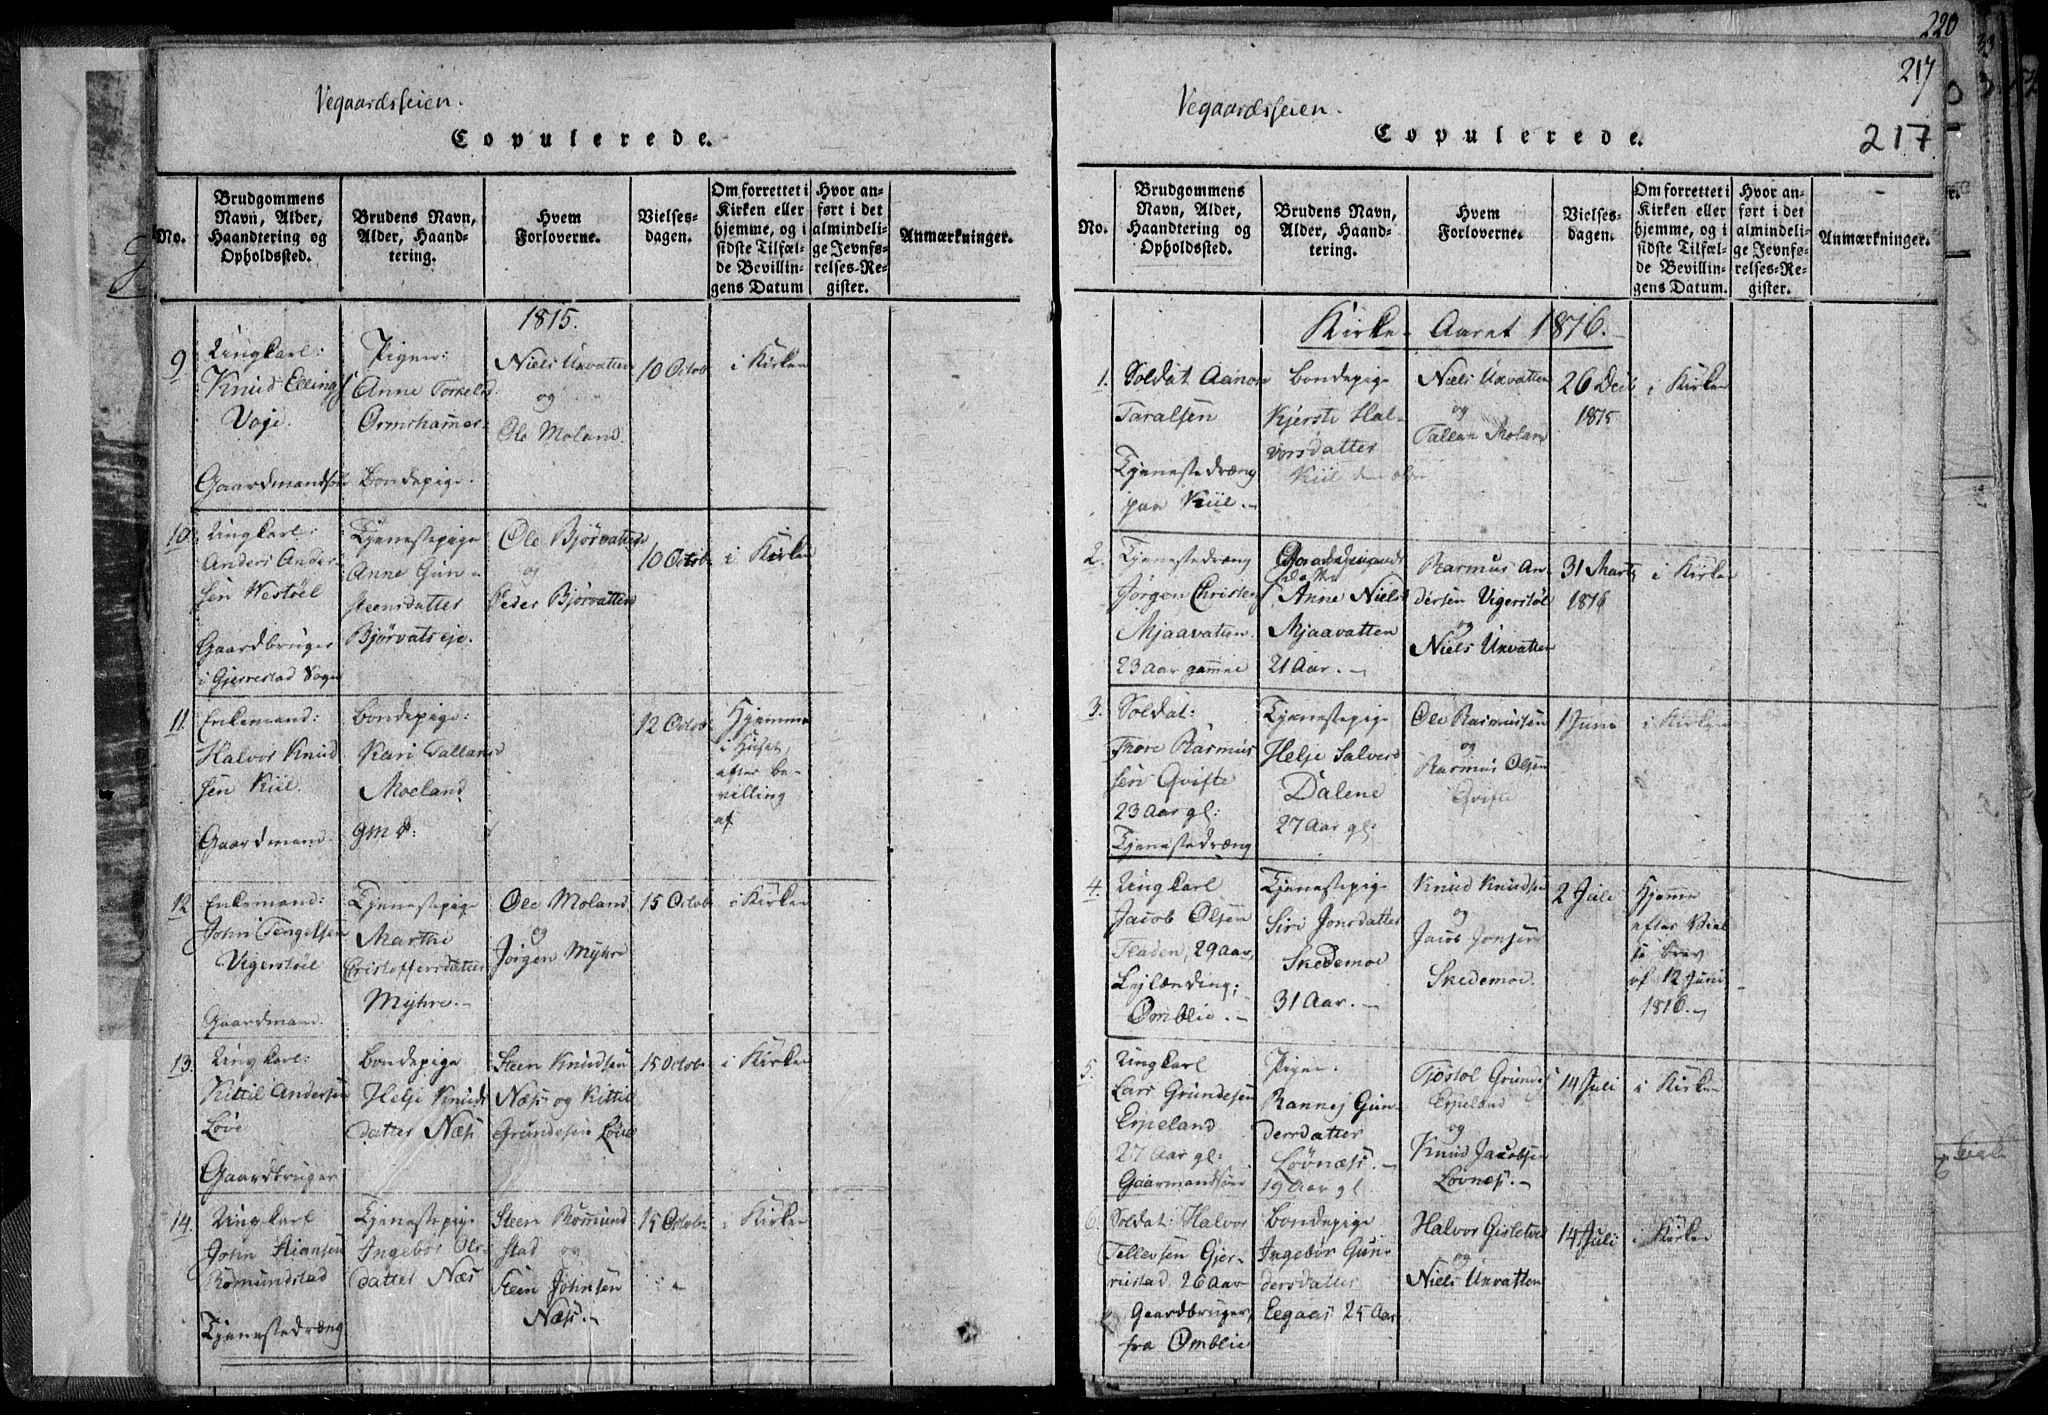 Vegaardsseien.
Copulerede.
No.
Brudgommens
Navn, Alder,
Haandtering og
Opholdssted.
Brudens Navn,
Alder, Haand-
tering.
Hvem
Forloverne.
Vielses-
dagen.
Om forrettet i
Kirken eller
hjemme, og i
sidste Tilfæl-
de Bevillin-
gens Datum
Hvor an-
ført i det
almindeli-
ge Jevnfø-
relses-Re-
gister.
Anmærkninger.
1815.
9
Ungkarl:
Knud Ellings
Voje.
Gaardmandsøn
Pigen:
Anne Torkelsd
Ormshammer
Bondepige.
Niels Uxvatten
og
Ole Moland.
10 Octob
i Kirken
10.
Ungkarl:
Anders Ander-
sen Westøel
Gaardbruger
i Gjerrestad Sogn
Tjenestepige
Anne Gun-
steensdatter
Bjørvatseje.
Ole Bjørvatten
og
Peder Bjørvatten
10 Octob.
i Kirken
11.
Enkemand:
Halvor Knud
sen Kiil.
Gaardmand
Bondepige:
Kari Tallansd
Moeland
gmd:
12 Octob.
Hjemme
i Huset,
efter be-
villing
af
12
Enkemand:
John Tengelsen
Vigerstøel
Gaardmand.
Tjenestepige
Marthe
Cristoffersdatter
Myhre.-
Ole Moland
og
Jørgen Myhre
15 Octob
i Kirken
13.
Ungkarl:
Kittil Andersen
Løve
Gaardbruger
Bondepige
Helje Knuds
datter Næss
Steen Knudsen
Næss og Kittil
Grundesen Løve
15 Octob.
i Kirken
14.
Ungkarl
John Aiansen
Romundstad
Tjenestedræng
Tjenestepige
Ingebor Ols-
datter Næs
Steen Romund
stad og
Steen Johnsen
Næss.-
15 Octob.
i Kirken
220
217
Vegaardsseien.
Copulerede.
217
No.
Brudgommens
Navn, Alder,
Haandtering og
Opholdssted.
Brudens Navn,
Alder, Haand-
tering.
Hvem
Forloverne.
Vielses-
dagen.
Om forrettet i
Kirken eller
hjemme, og i
sidste Tilfæl-
de Bevillin-
gens Datum.
Hvor an-
ført i det
almindeli-
ge Jevnfø-
relses-Re-
gister.
Anmærkninger.
Kirke-Aaret 1816.
1.
Soldat Aanon
Taralsen
Tjenestedræng
paa Kiil.-
Bondepige
Kjerste Hal-
vorsdatter
Kiil
Niels Uxvatten
og
Tallan Molan
26 Decb
1815
i Kirken
2.
Tjenestedræng
Jørgen Christens
Mjaavatten.
23 Aar gamme
Anne Niels
Mjaavatten
21 Aar.-
Rasmus An-
dersen Vigerstøl
og
Niels Uxvatten
31 Marts
1816
i Kirken
3.
Soldat:
Thore Rasmus
sen Qvifte
23 Aar gl:
Tjenestedræng
Tjenestepige
Helje Salves
Dalene
27 Aar gl:
Ole Rasmussen
og
Rasmus Olsen
Qvifte
1 Juni
i Kirken
4.
Ungkarl
Jacob Olsen
Fladen, 29 aar,
Lejlænding;
Omblie.-
Tjenestepige
Siri Jonsdatter
Skedemoe
31 Aar.-
Knud Knudsen
og
Jacob Jonsen
Skedemoe.
2 Juli
Hjemme
efter Viel
se brev
af 12 Juni
1816.-
5.
Ungkarl
Lars Grundesen
Espeland
27 Aar gl:
Gaarmandsøn
Pigen:
Rannej Gun-
dersdatter
Løvnæss.-
19 Aar gl.
Tjøstol Grundes
Espeland
og
Knud Jacobsen
Løvnæss.-
14 Juli
i Kirken
6.
Soldat: Halvor
Tellevsen Gjer-
rustad 26 aar
Gaardbruger,
fra Omblie
Bondepige
Ingebør Gun-
dersdatter
Eegaas 25 Aar
Halvor Gisletved
og
Niels Uxvatten
14 Juli
i Kirken